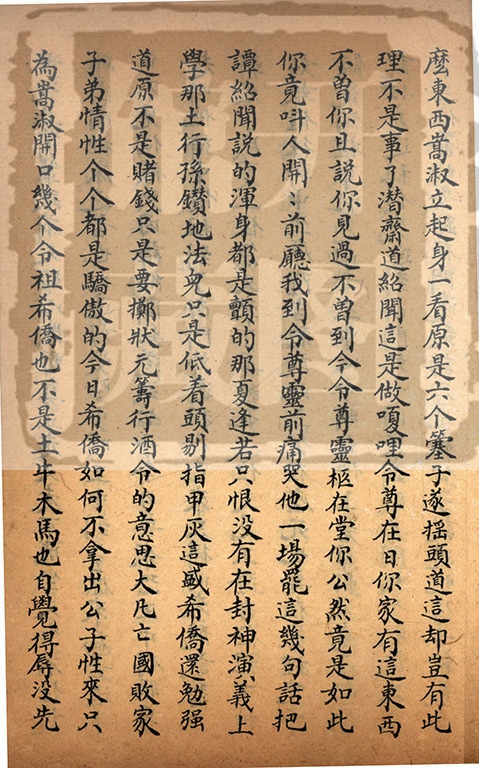 麽東西嵩淑立起身一看原是六个簺子遂摇頭道這却豈有此
理不是事了潜齋道紹聞這是做嗄哩令尊在日你家有這東西
不曽你且説你見過不曽到今令尊靈柩在堂你公然竟是如此
你竟呌人開〻前廳我到令尊靈前痛哭他一場罷這幾句話把
譚紹聞説的渾身都是顫的那夏逢若只恨没有在封神演義上
學那土行孫鑚地法兒只是低着頭剔指甲灰這盛希僑還勉强
道原不是賭錢只是要擲狀元籌行酒令的意思大凡亡國敗家
子弟情性个个都是驕傲的今日希僑如何不拿出公子性來只
為嵩淑開口幾个令祖希僑也不是土牛木馬也自覺得辱没先